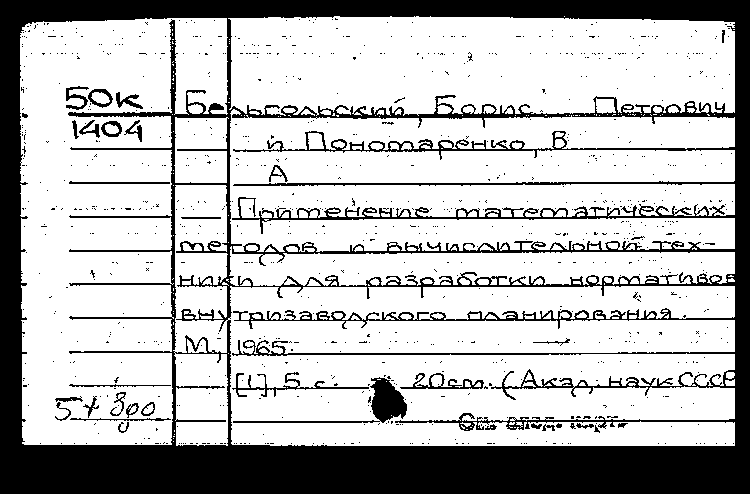 1
50к Бельгольский, Борис Петрович
1404
и Пономаренко, В
А
Применение математических
методов и вычислительной тех-
ники для разработки нормативов
внутризаводского планирования.
М., 1965.
[1], 5 с. 20 см. (Акад. наук СССР
5+
См. след. карт.